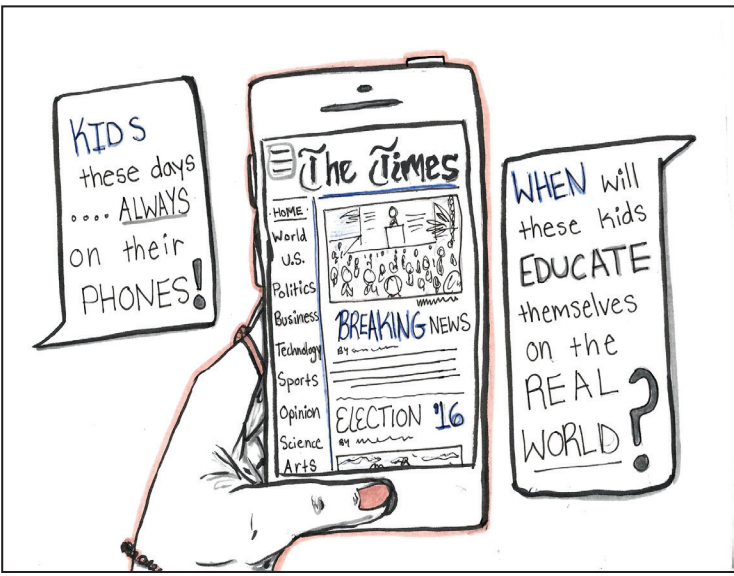 KIDS
these days
.... ALWAYS
on their
PHONES!
The Times
HOME
World
U.S.
Politics
Business
Technology
Sports
Opinion
Science
Arts
BREAKING NEWS
BY
ELECTION '16
BY
WHEN will
these kids
EDUCATE
themselves
on the
REAL
WORLD?